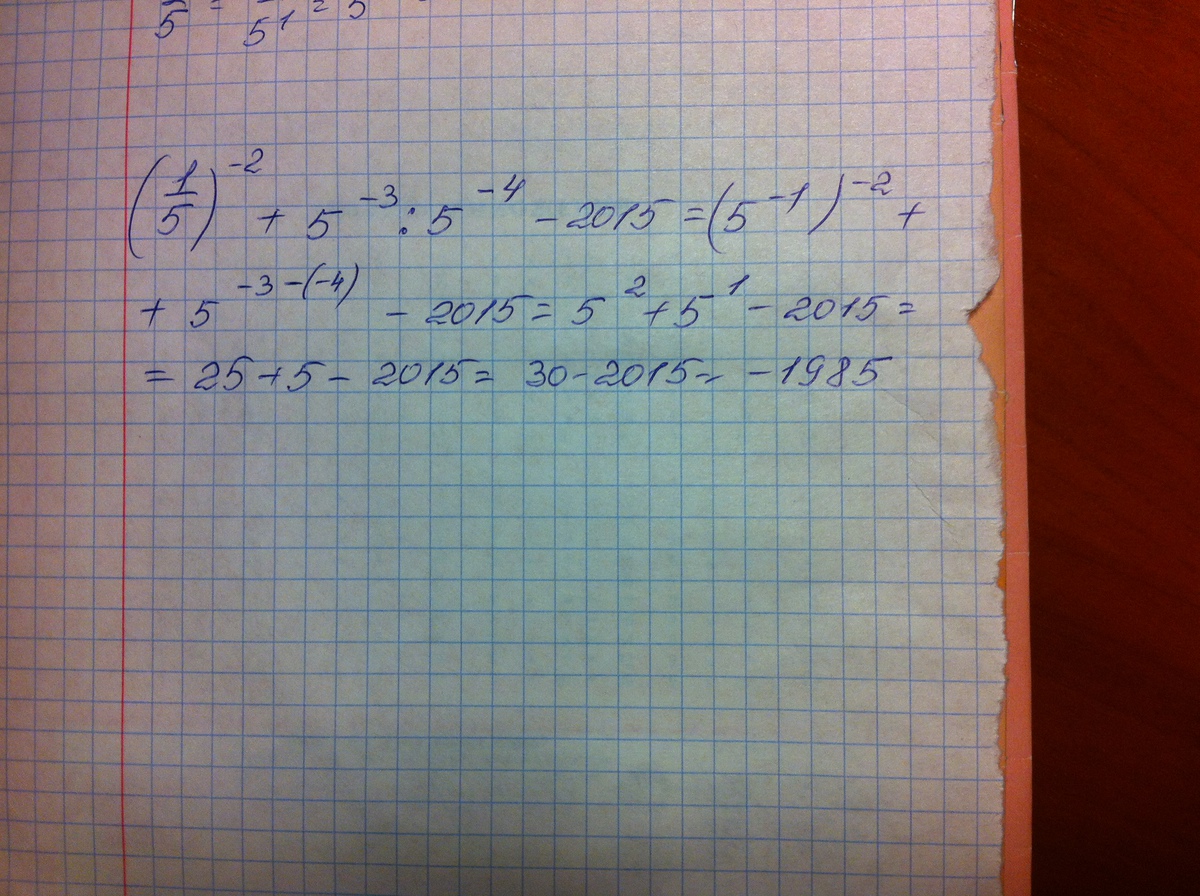 5 = 5¹ = 5
(1/5)⁻² + 5⁻³ : 5⁻⁴ - 2015 = (5⁻¹)⁻² +
+ 5⁻³⁻⁽⁻⁴⁾ - 2015 = 5² + 5¹ - 2015 =
= 25 + 5 - 2015 = 30 - 2015 = -1985